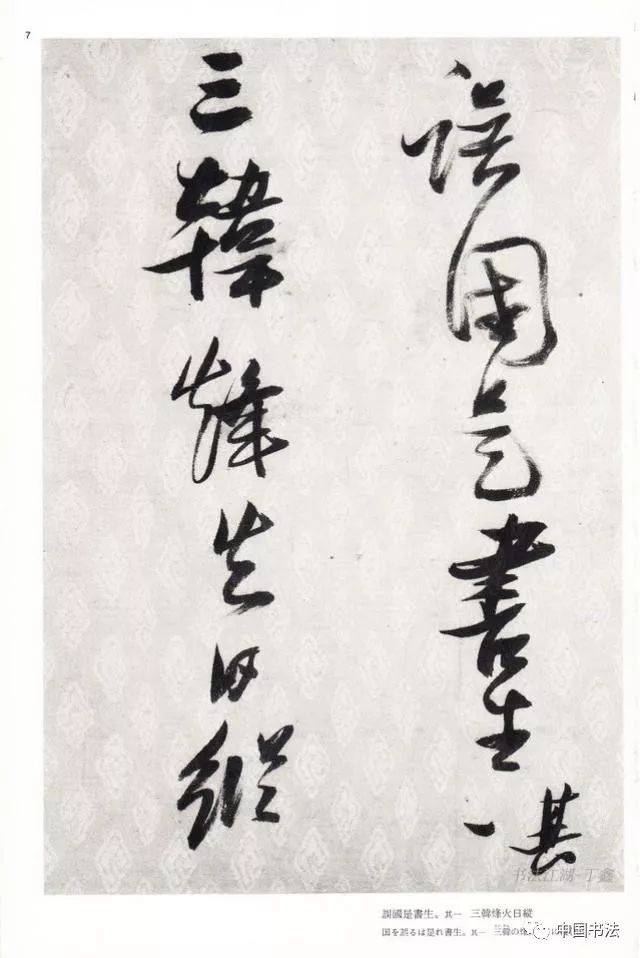 7
誤國是書生
其一
三韓烽火日縱
书法江湖-丁鑫
誤國是書生。其一 三韓烽火日縱
国を誤るは是れ書生。其一 三韓の烽
中国书法